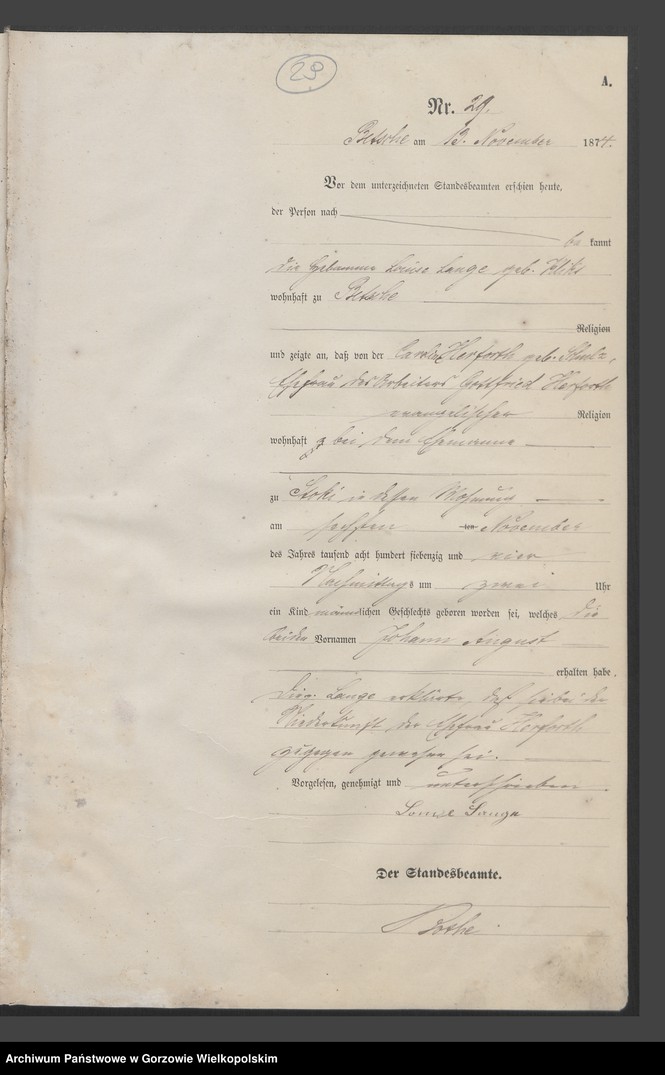 29
A.
Nr. 29.
Betsche am 13. November 1874.
Vor dem unterzeichneten Standesbeamten erschien heute,
der Person nach
be kannt
die Hebamme Louise Lange geb.
wohnhaft zu Betsche
Religion
und zeigte an, daß von der Herforth geb.
Ehefrau des Arbeiters Gottfried Herforth
evangelischer Religion
wohnhaft bei dem Ehemanne
zu Stoki in dessen Wohnung
am sechsten ten November
des Jahres tausend acht hundert siebenzig und vier
Nachmittags um zwei Uhr
ein Kind männlichen Geschlechts geboren worden sei, welches die
beiden Vornamen Johann August
erhalten habe.
Lange erklärte, daß sie bei der
Niederkunft der Ehefrau Herforth
zugegen gewesen sei.
Vorgelesen, genehmigt und unterschrieben
Louise Lange
Der Standesbeamte.
Bothe
Archiwum Państwowe w Gorzowie Wielkopolskim